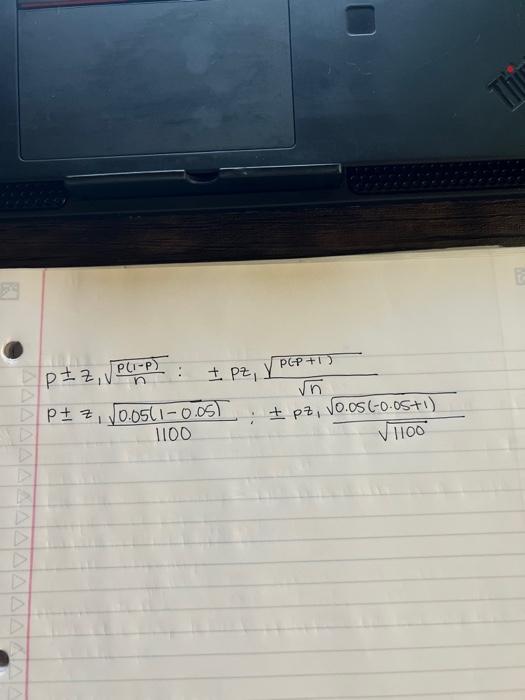 Thin
p ± z₁√(p(1-p)/n) : ± pz₁ √(p(-p+1))/√n
p ± z₁ √(0.05(1-0.05))/1100 : ± pz₁ √(0.05(-0.05+1))/√1100